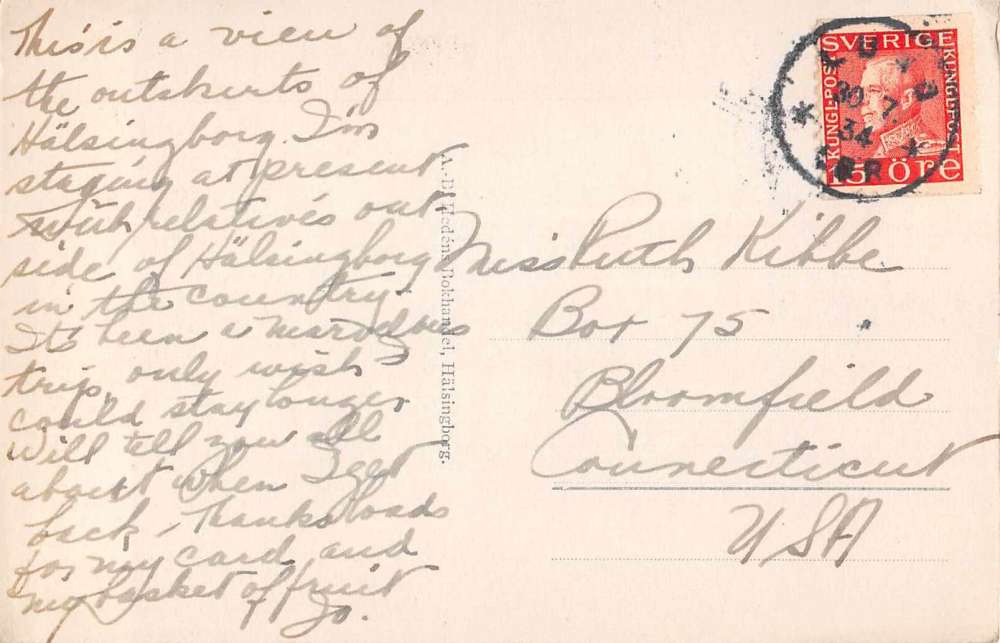 This is a view of
the outskirts of
Hälsingborg. I'm
staying at present
with relatives out-
side of Hälsingborg
in the country.
It's been a marvelous
trip, only wish I
could stay longer
Will tell you all
about when I get
back, Thanks loads
for my card and
my basket of fruit
Jo.
A.-B. Hedéns Bokhandel, Hälsingborg.
SVERIGE
KUNGL-POST
KUNGL-POST
15 öre
30 7
34
Miss Ruth Kibbe
Box 75
Bloomfield
Connecticut
USA